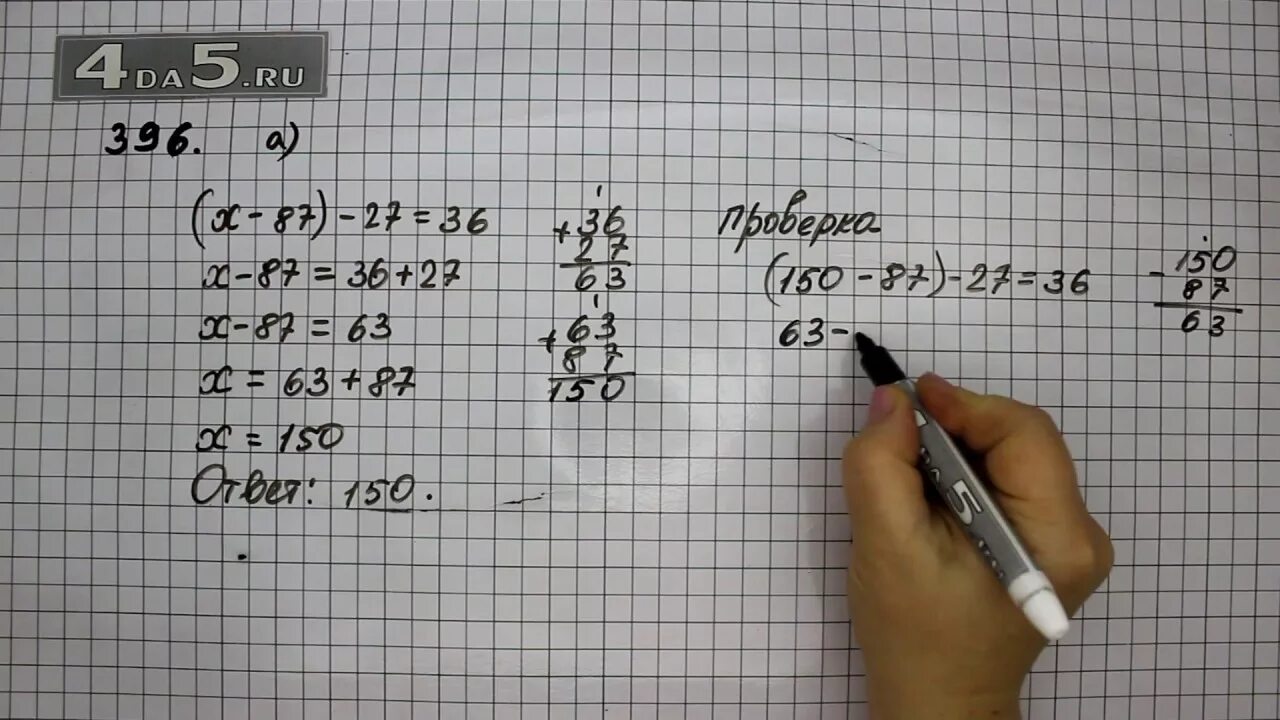 4DA5.RU
396. а)
(x - 87) - 27 = 36
x - 87 = 36 + 27
x - 87 = 63
x = 63 + 87
x = 150
Ответ: 150.
1
+ 36
27
63
1
+ 63
87
150
проверка
(150 - 87) - 27 = 36
63 -
- 150
87
63
DA 5